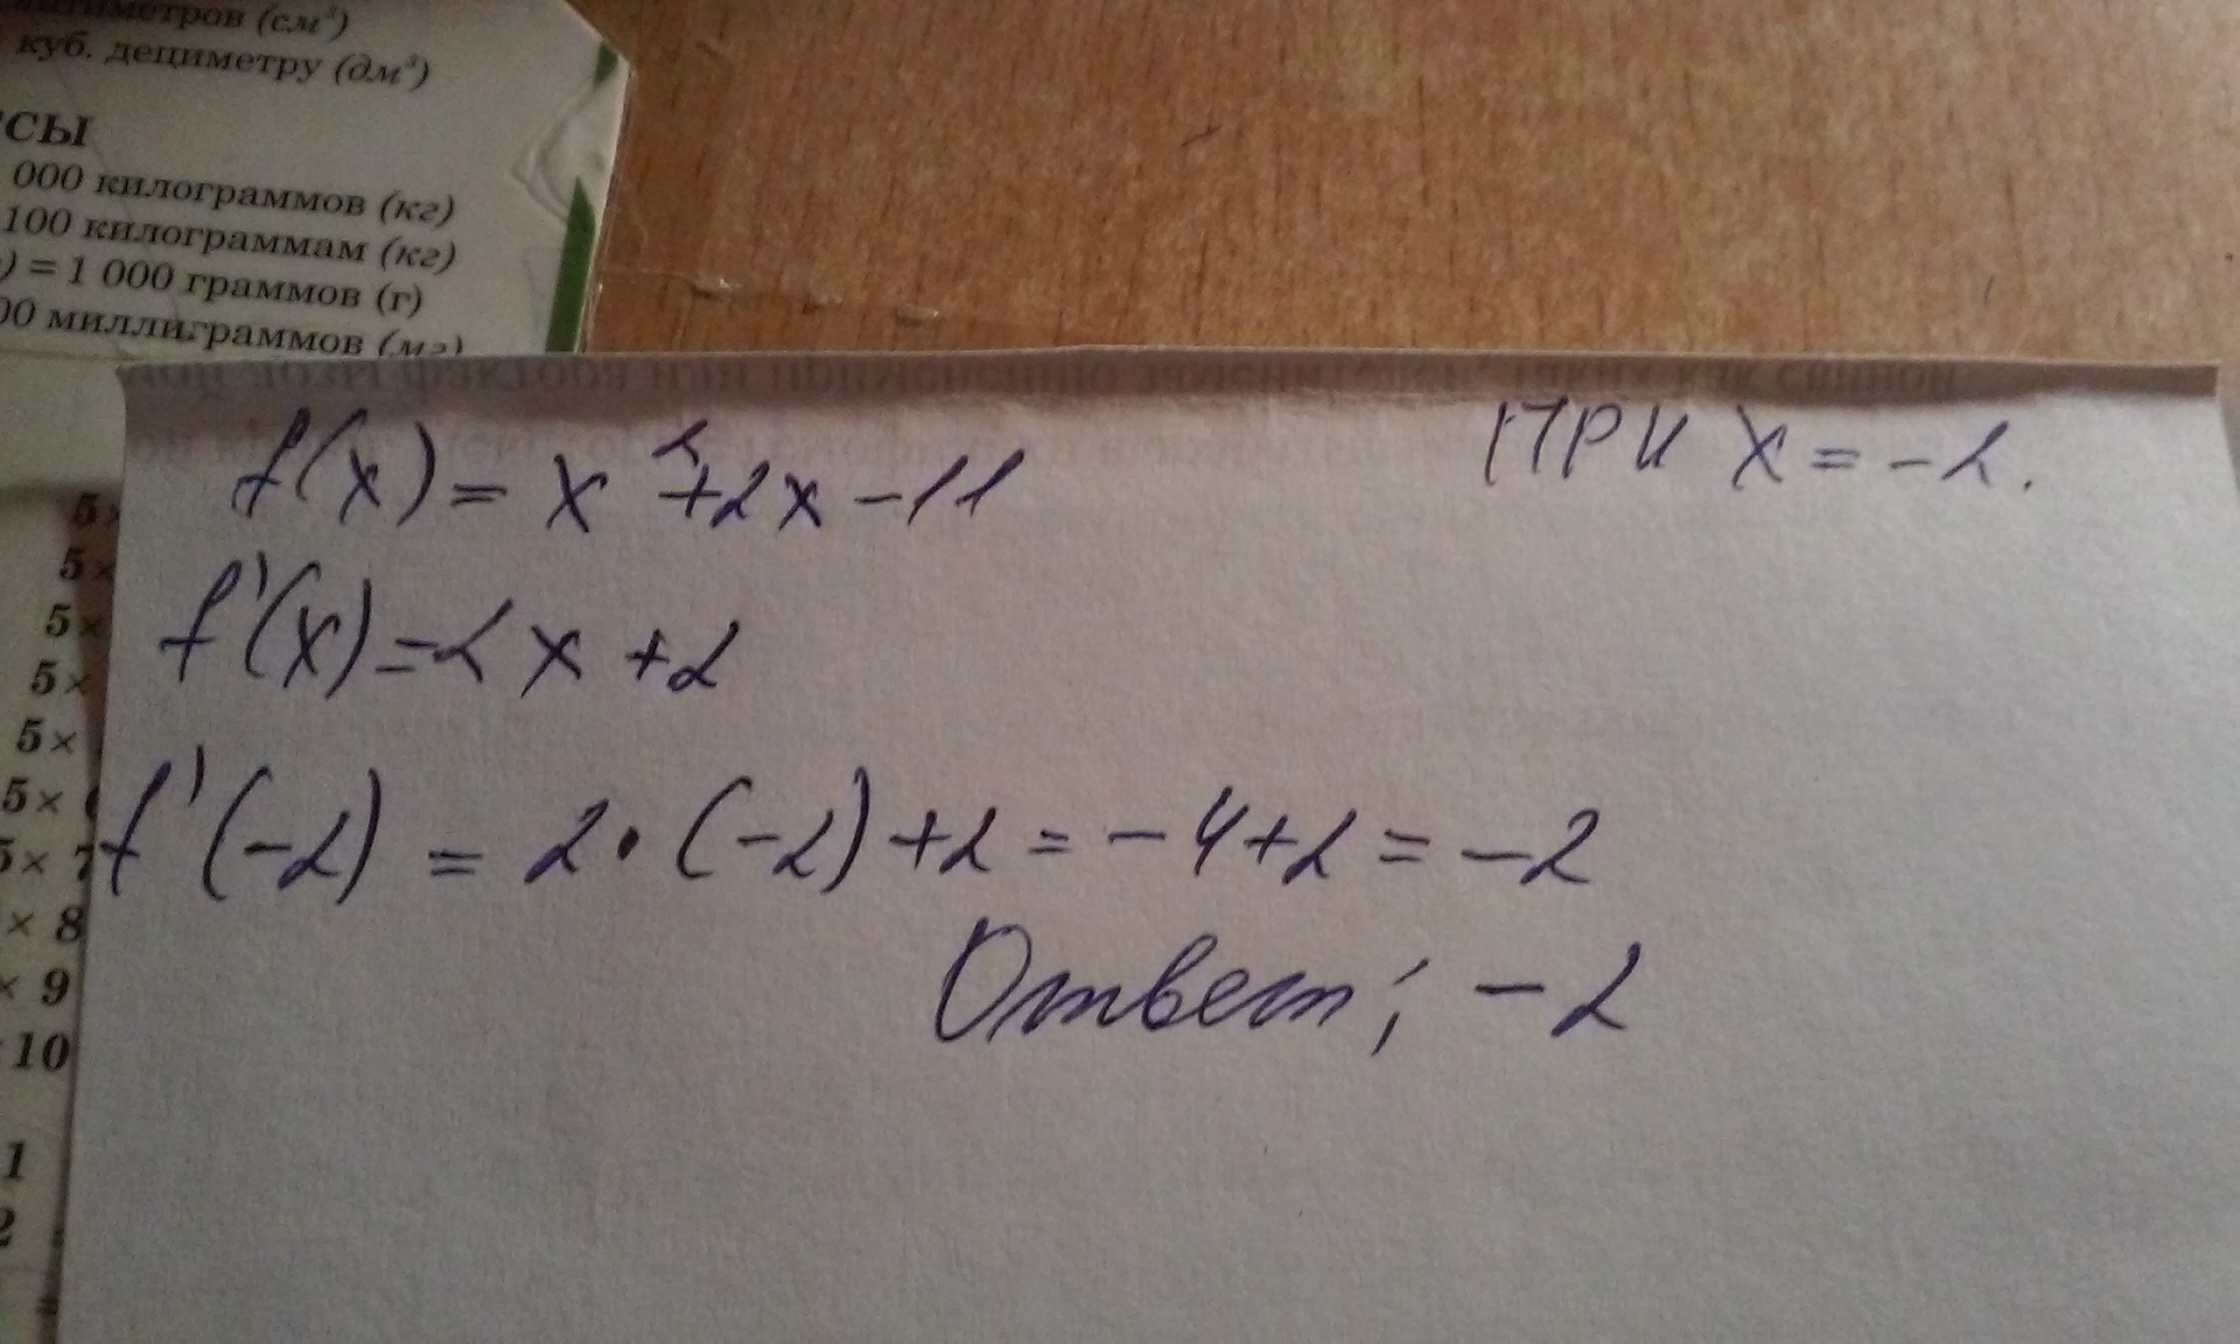 куб. дециметру (дм³)
000 килограммов (кг)
100 килограммам (кг)
) = 1 000 граммов (г)
00 миллиграммов (мг)
f(x) = x²+2x-11 ПРИ x = -2.
f'(x)=2x+2
f'(-2) = 2·(-2)+2 = -4+2 = -2
Ответ; -2
5×
5×
5×
5×
5×
5×
5× 7
× 8
× 9
10
1
2